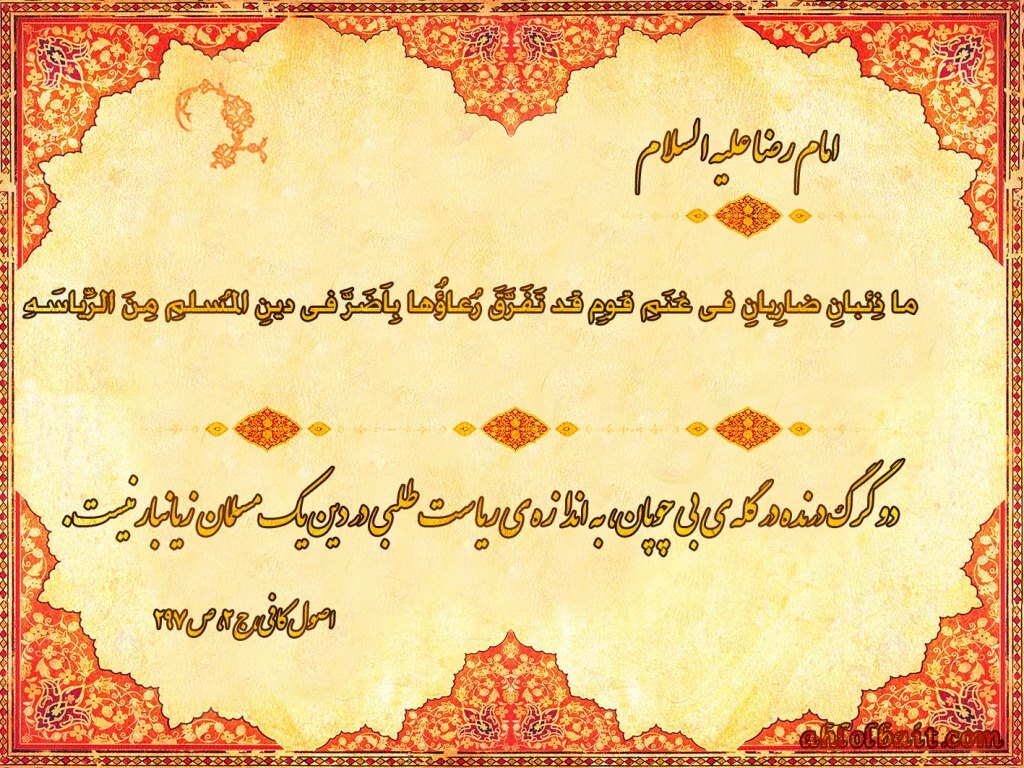 امام رضا علیه السلام
ما ذِئبانِ ضارِیانِ فی غَنَمِ قومٍ قد تَفَرَّقَ رُعاؤُها بِاَضَرَّ فی دینِ المُسلمِ مِنَ الرِّیاسَهِ
دو گرگ درنده در گله ی بی چوپان، به اندازه ی ریاست طلبی در دین یک مسلمان زیانبار نیست.
اصول کافی، ج ۲، ص ۲۹۷
ahlolbait.com